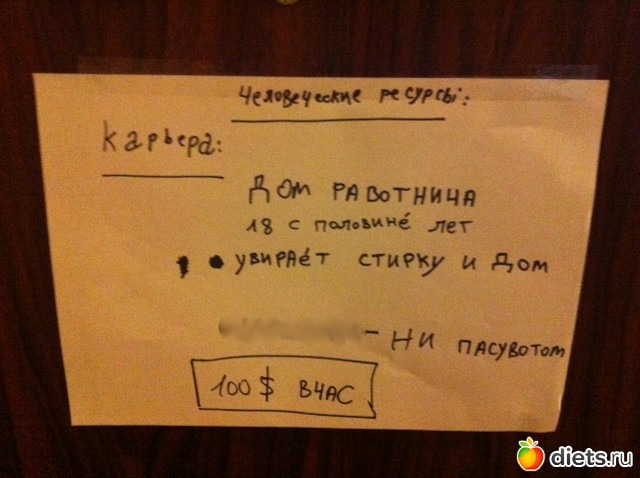 Человеческие ресурсы:
Карьера:
ДОМ РАВОТНИЧА
18 с половине́ лет
• увирае́т стирку и дом
– НИ ПАСУВОТОМ
100$ вчас
diets.ru